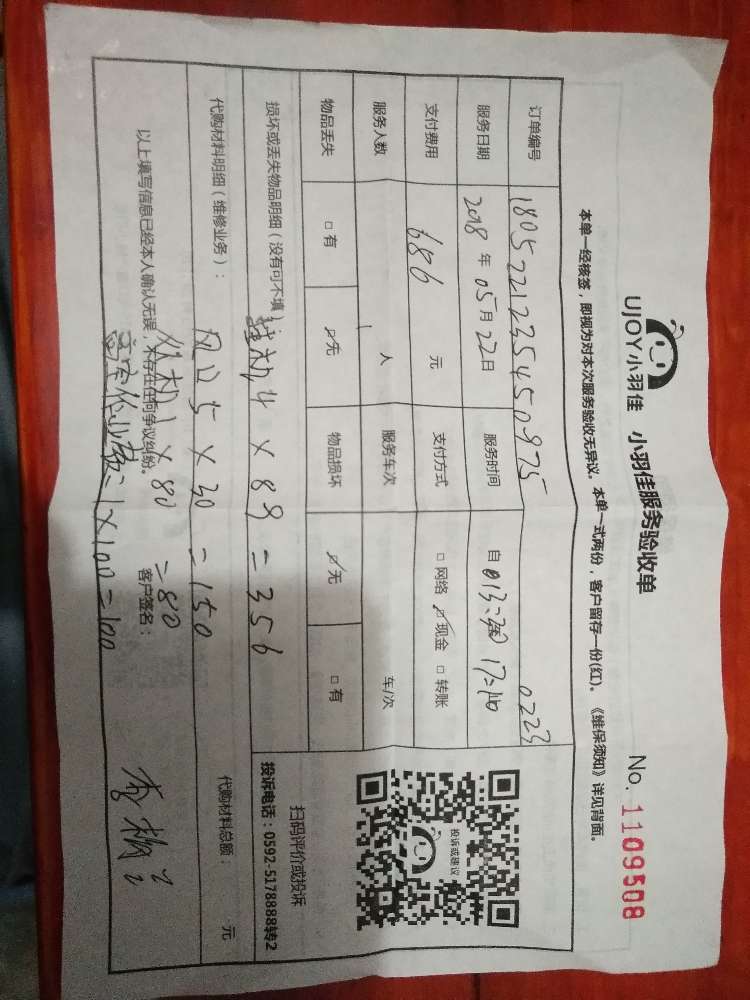 UJOY小羽佳 小羽佳服务验收单 No. 1109508
本单一经核签，即视为对本次服务验收无异议。本单一式两份，客户留存一份(红)。《维保须知》详见背面。
订单编号 180522123545 0975 0223
服务日期 2018 年 05 月 22 日 服务时间 自 013:30 17:
支付费用 686 元 支付方式 □ 网络 ☑ 现金 □ 转账
服务人数 1 人 服务车次 车/次
物品丢失 □ 有 ☑ 无 物品损坏 ☑ 无 □ 有
投诉或建议
扫码评价或投诉
投诉电话：0592-5178888转2
损坏或丢失物品明细（没有可不填）
挂机 4 × 89 = 356
代购材料明细（维修业务）： 代购材料总额： 元
风口 5 × 30 = 150
机 1 × 80 = 80
以上填写信息已经本人确认无误，不存在任何争议纠纷。 客户签名：
高空作业费=1×100=100